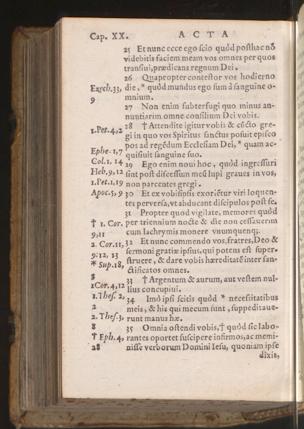 Cap. XX. ACTA
25 Et nunc ecce ego scio quòd posthac nõ
videbitis faciem meam vos omnes per quos
transiui, prædicans regnum Dei.
26 Quapropter contestor vos hodierno
Ezech.33, die, * quòd mundus ego sum à sanguine o-
9 mnium.
27 Non enim subterfugi quo minus an-
nuntiarim omne consilium Dei vobis.
28 † Attendite igitur vobis & cũcto gre-
1.Pet.4,2 gi in quo vos Spiritus sanctus posuit episco
pos ad regẽdum Ecclesiam Dei, * quam ac-
Ephe.1,7 quisiuit sanguine suo.
Col.1,14 29 Ego enim noui hoc, quòd ingressuri
Heb.9,12 sint post discessum meũ lupi graues in vos,
1.Pet.1,19 non parcentes gregi.
Apoc.5,9 30 Et ex vobisipsis exoriẽtur viri loquen-
tes peruersa, vt abducant discipulos post se.
31 Propter quod vigilate, memores quòd
† 1. Cor. per triennium nocte & die non cessauerim
9,11 cum lachrymis monere vnumquenq;
2. Cor.11, 32 Et nunc commendo vos, fratres, Deo &
9:12, 13 sermoni gratiæ ipsius, qui potens est super-
* Sup.18, struere, & dare vobis hæreditatẽ inter san-
8 ctificatos omnes.
1Cor.4,12 33 † Argentum & aurum, aut vestem nul-
1.Thes. 2, lius concupiui.
9 34 Imò ipsi scitis quòd * necessitatibus
2. Thes.3, meis, & his qui mecum sunt, suppeditaue-
8 runt manus hæ.
† Eph.4, 35 Omnia ostendi vobis, † quòd sic labo-
28 rantes oportet suscipere infirmos, ac memi-
nisse verborum Domini Iesu, quoniam ipse
dixit,